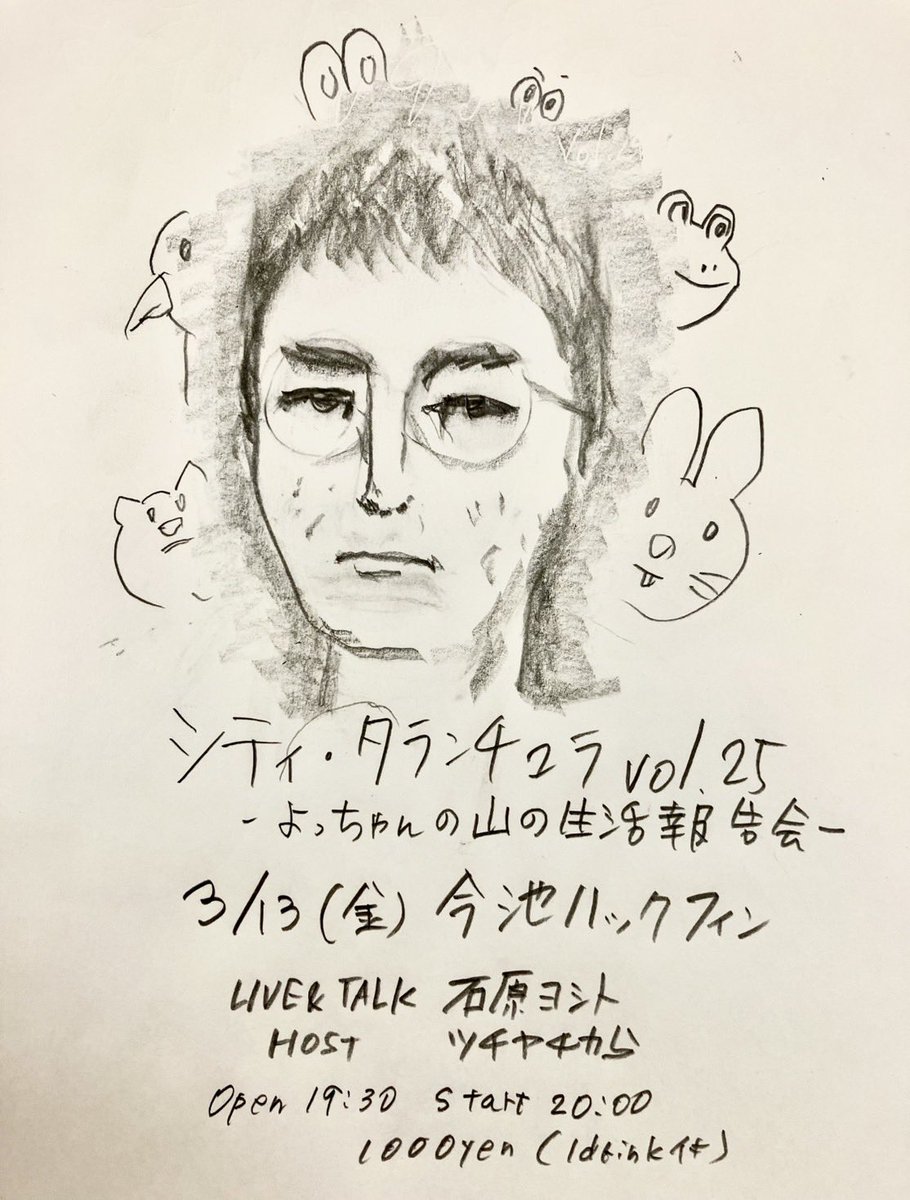 シティ・タランチュラ vol.25
-よっちゃんの山の生活報告会-
3/13(金) 今池ハックフィン
LIVE& TALK 石原ヨシト
HOST ツチヤチカら
Open 19:30 Start 20:00
1000yen (1drink付)